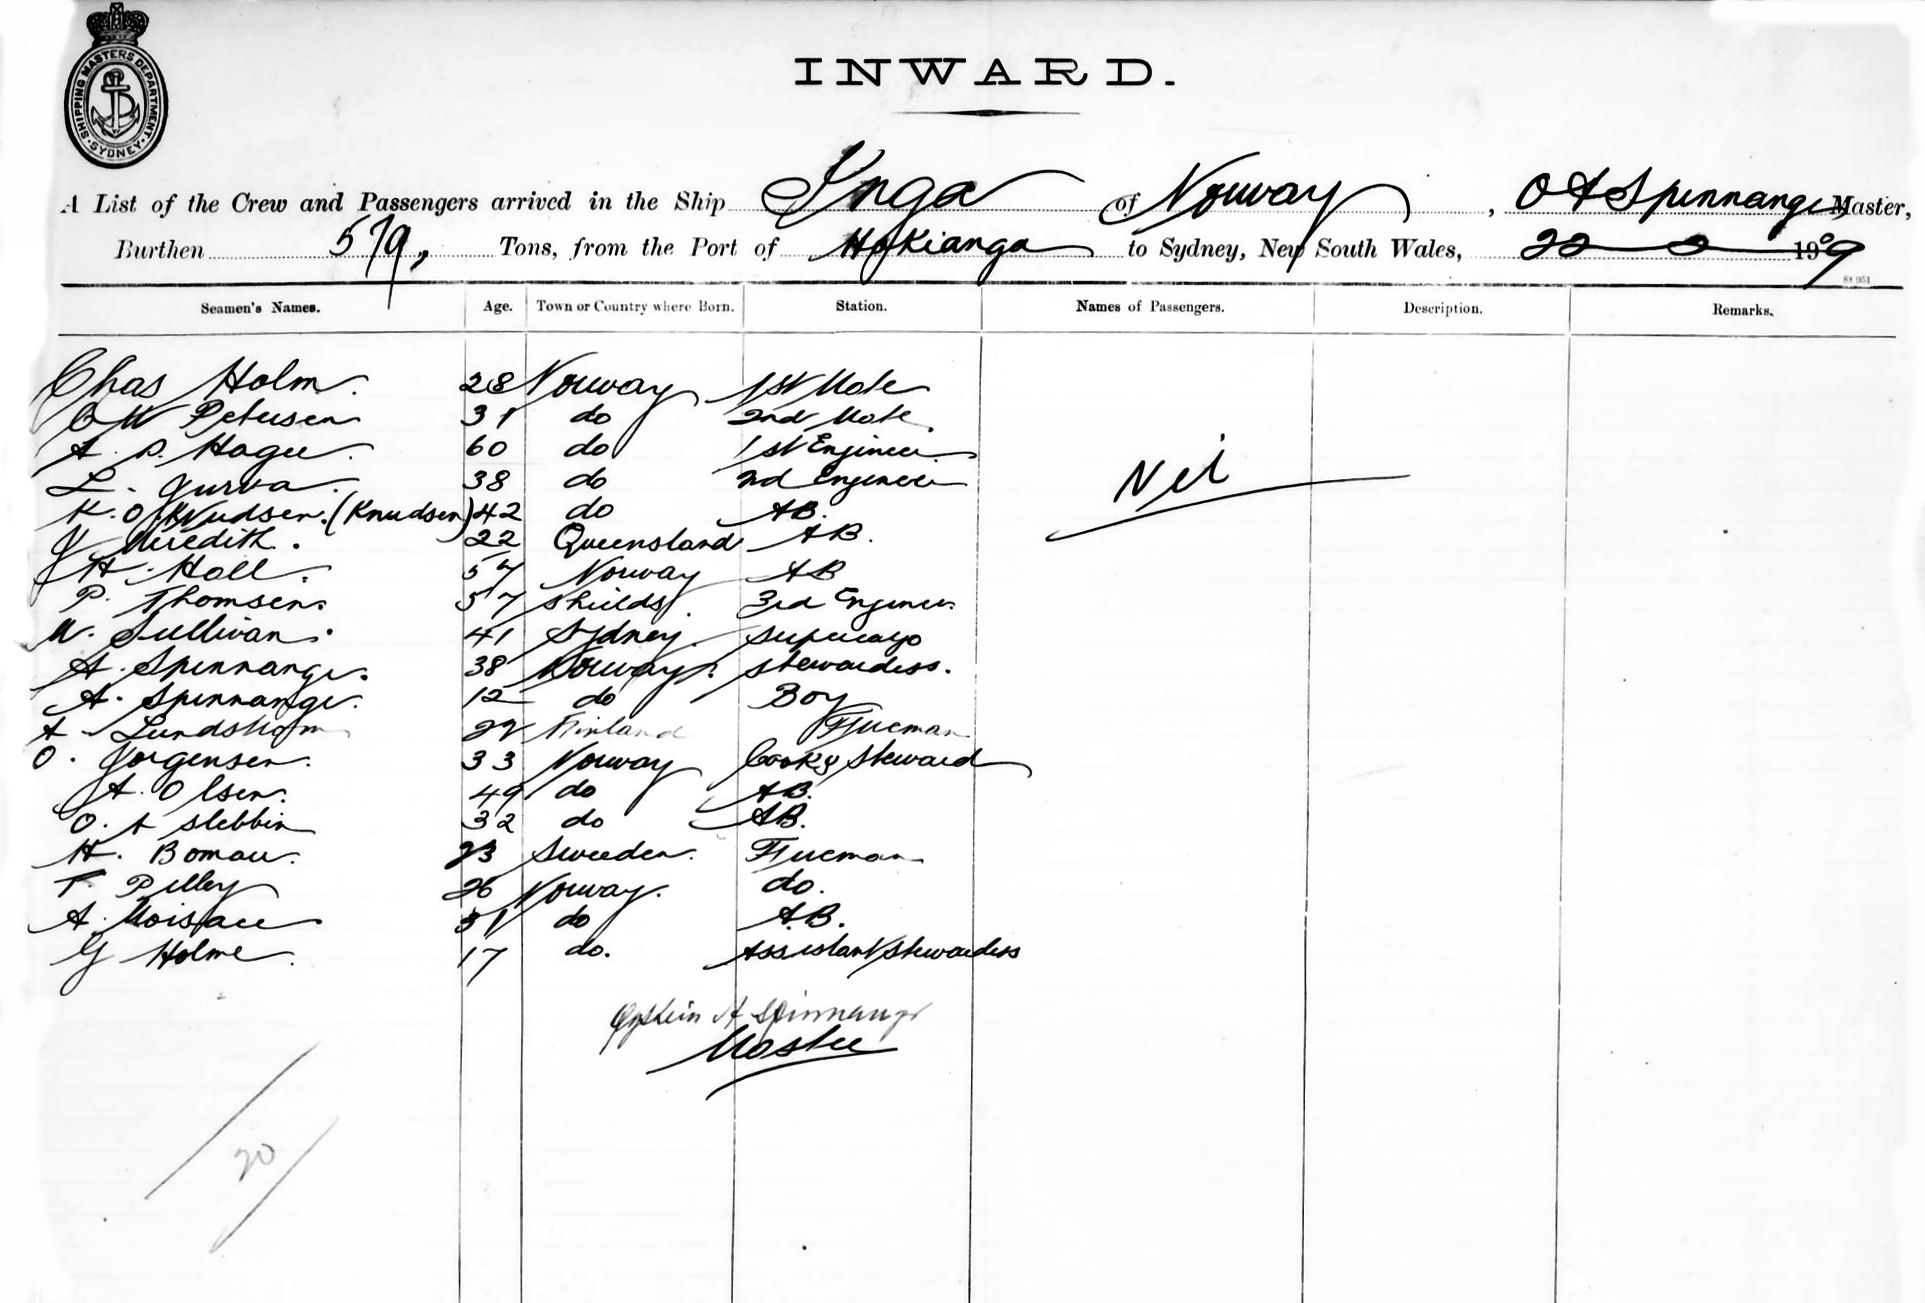 SHIPPING MASTERS DEPARTMENT. SYDNEY.
INWARD.
A List of the Crew and Passengers arrived in the Ship Inga of Norway, O A Spinnanger Master,
Burthen 579, Tons, from the Port of Hokianga to Sydney, New South Wales, 22 – 2 – 1909
St 951
Seamen's Names. Age. Town or Country where Born. Station. Names of Passengers. Description. Remarks.
Chas Holm. 28 Norway 1st Mate
C W Petersen 31 do 2nd Mate.
A. P. Hagee. 60 do 1st Engineer
L. Jurva. 38 do 2nd Engineer
K. O Knudsen. (Knudsen) 42 do AB.
Nil
J Meredith. 22 Queensland AB.
J H. Hall. 57 Norway AB
P. Thomsen. 57 Shields. 3rd Engineer.
W. Sullivan. 41 Sydney. Supercargo
A. Spinnanger. 38 Norway. Stewardess.
A. Spinnanger. 12 do Boy
A Lundsholm 22 Finland Fireman
O. Jorgensen. 33 Norway Cook & Steward
A. Olsen. 49 do AB.
O. A Stebbin 32 do AB.
H. Boman. 23 Sweeden. Fireman
T Pilley 26 Norway. do.
A. 31 do A.B.
G Holme. 17 do. Assistant Stewardess
A Spinnanger
Master
20